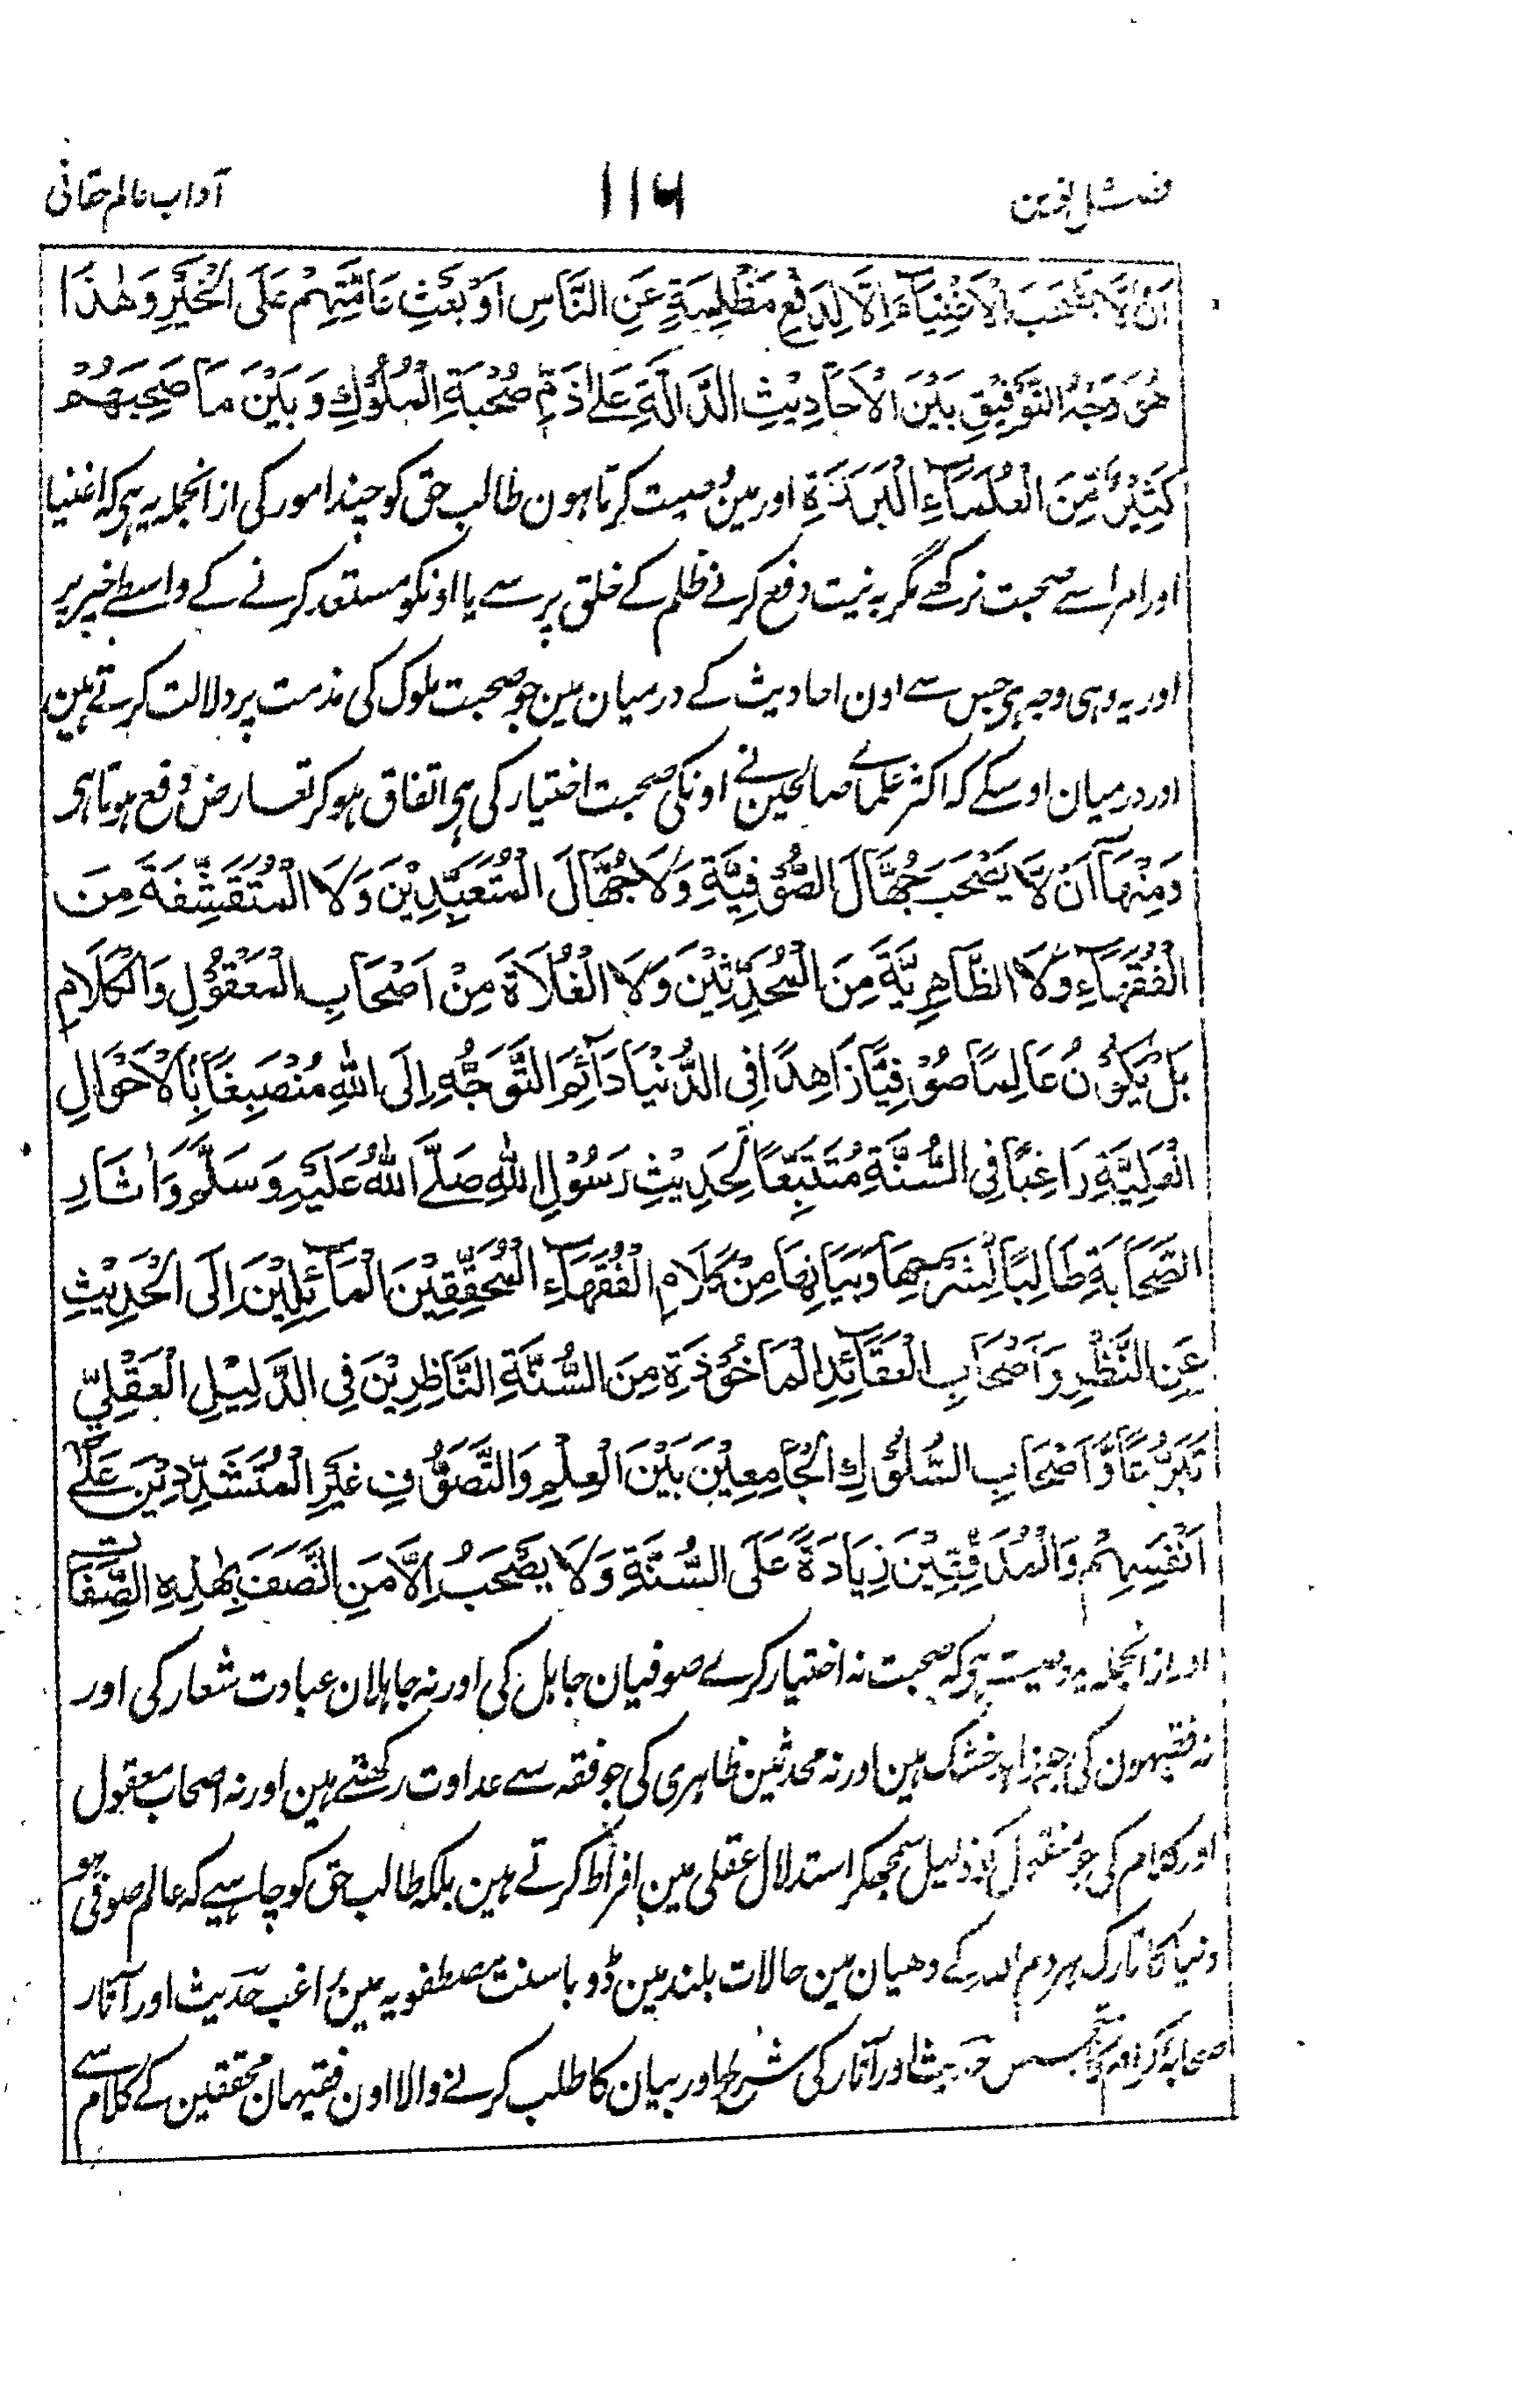 آداب عالم حقانی ۱۱۶ فصل نوین
اَنْ لَّا يَصْحَبَ الْاَغْنِيَآءَ اِلَّا لِدَفْعِ مَظْلِمَةٍ عَنِ النَّاسِ اَوْ بَعْثِ عَامَّتِهِمْ عَلَى الْخَيْرِ وَهٰذَا
هُوَ وَجْهُ التَّوْفِيْقِ بَيْنَ الْاَحَادِيْثِ الدَّالَّةِ عَلٰى ذَمِّ صُحْبَةِ الْمُلُوْكِ وَبَيْنَ مَا صَحِبَهُمْ
كَثِيْرٌ مِّنَ الْعُلَمَآءِ الْبَرَرَةِ اور مین وصیت کرتا ہون طالب حق کو چند امور کی ازانجملہ یہ ہی کہ اغنیا
اور امرا سے صحبت نرکھے مگر بہ نیت دفع کرنے ظلم کے خلق پر سے یا اونکو مستعد کرنے کے واسطے خیر پر
اور یہ وہی وجہ ہی جس سے اون احادیث کے درمیان مین جو صحبت ملوک کی مذمت پر دلالت کرتے ہین
اور درمیان اوسکے کہ اکثر علمائے صالحین نے اونکی صحبت اختیار کی ہی اتفاق ہو کر تعارض دفع ہوتا ہی
وَمِنْهَا اَنْ لَّا يَصْحَبَ جُهَّالَ الصُّوْفِيَّةِ وَلَا جُهَّالَ الْمُتَعَبِّدِيْنَ وَلَا الْمُتَقَشِّفَةَ مِنَ
الْفُقَهَآءِ وَلَا الظَّاهِرِيَّةَ مِنَ الْمُحَدِّثِيْنَ وَلَا الْغُلَاةَ مِنْ اَصْحَابِ الْمَعْقُوْلِ وَالْكَلَامِ
بَلْ يَكُوْنُ عَالِمًا صُوْفِيًّا زَاهِدًا فِى الدُّنْيَا دَآئِمَ التَّوَجُّهِ اِلَى اللهِ مُنْصَبِغًا بِالْاَحْوَالِ
الْعَلِيَّةِ رَاغِبًا فِى السُّنَّةِ مُتَتَبِّعًا لِحَدِيْثِ رَسُوْلِ اللهِ صَلَّى اللهُ عَلَيْهِ وَسَلَّمَ وَاٰثَارِ
الصَّحَابَةِ طَالِبًا لِشَرْحِهَا وَبَيَانِهَا مِنْ كَلَامِ الْفُقَهَآءِ الْمُحَقِّقِيْنَ الْمَآئِلِيْنَ اِلَى الْحَدِيْثِ
عَنِ النَّظْرِ وَاَصْحَابِ الْعَقَآئِدِ الْمَاخُوْذَةِ مِنَ السُّنَّةِ النَّاظِرِيْنَ فِى الدَّلِيْلِ الْعَقْلِيِّ
تَبَرُّعًا وَّاَصْحَابِ السُّلُوْكِ الْجَامِعِيْنَ بَيْنَ الْعِلْمِ وَالتَّصَوُّفِ غَيْرِ الْمُتَشَدِّدِيْنَ عَلٰى
اَنْفُسِهِمْ وَالْمُدَقِّقِيْنَ زِيَادَةً عَلَى السُّنَّةِ وَلَا يَصْحَبُ اِلَّا مَنِ اتَّصَفَ بِهٰذِهِ الصِّفَاتِ
اور ازانجملہ یہ وصیت ہی کہ صحبت نہ اختیار کرے صوفیان جاہل کی اور نہ جاہلان عبادت شعار کی اور
نہ فقیہون کی جو زاہد خشک ہین اور نہ محدثین ظاہری کی جو فقہ سے عداوت رکھتے ہین اور نہ اصحاب معقول
اور کلام کی جو منقول کو ذلیل سمجھکر استدلال عقلی مین افراط کرتے ہین بلکہ طالب حق کو چاہیے کہ عالم صوفی ہو
دنیا کا تارک ہر دم اللہ کے دھیان مین حالات بلند مین ڈوبا سنت مصطفویہ مین راغب حدیث اور آثار
صحابہ کرام کا متجسس حدیث اور آثار کی شرح اور بیان کا طلب کرنے والا اون فقیہان محققین کے کلام سے